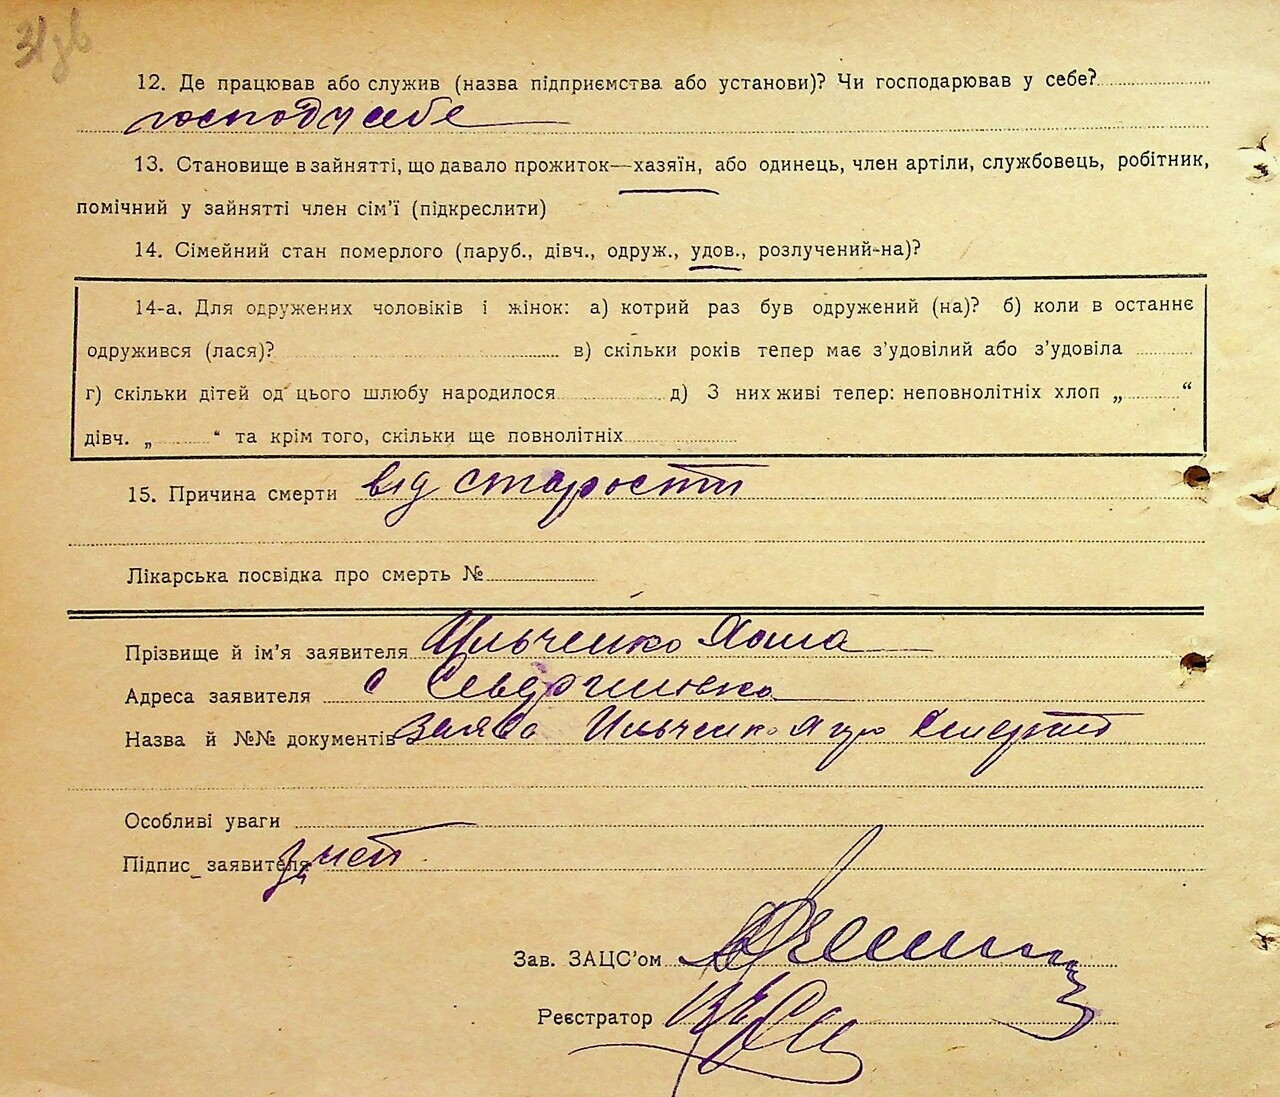 31 зв
12. Де працював або служив (назва підприємства або установи)? Чи господарював у себе?
господ у себе
13. Становище в зайнятті, що давало прожиток—хазяїн, або одинець, член артіли, службовець, робітник,
помічний у зайнятті член сім’ї (підкреслити)
14. Сімейний стан померлого (паруб., дівч., одруж., удов., розлучений-на)?
14-а. Для одружених чоловіків і жінок: а) котрий раз був одружений (на)? б) коли в останнє
одружився (лася)? в) скільки років тепер має з’удовілий або з’удовіла
г) скільки дітей од цього шлюбу народилося д) З них живі тепер: неповнолітніх хлоп „ “
дівч. „ “ та крім того, скільки ще повнолітніх
15. Причина смерти від старости
Лікарська посвідка про смерть №
Прізвище й ім’я заявителя Ильченко
Адреса заявителя с
Назва й №№ документів заява Ильченко я про
Особливі уваги
Підпис заявителя
Зав. ЗАЦС’ом
Реєстратор